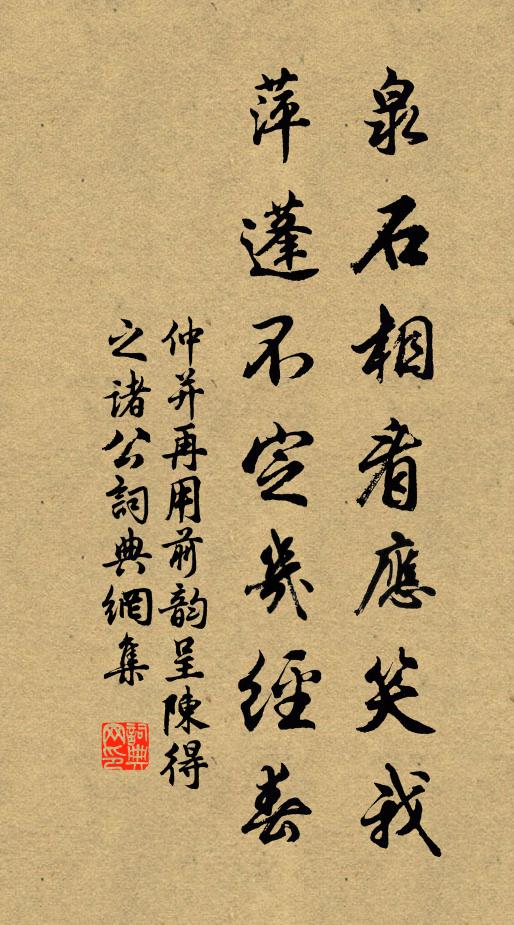 泉石相看應笑我
萍蓬不定幾經春
仲并再用前韵呈陳得
之諸公詞典網集
詞典
网印